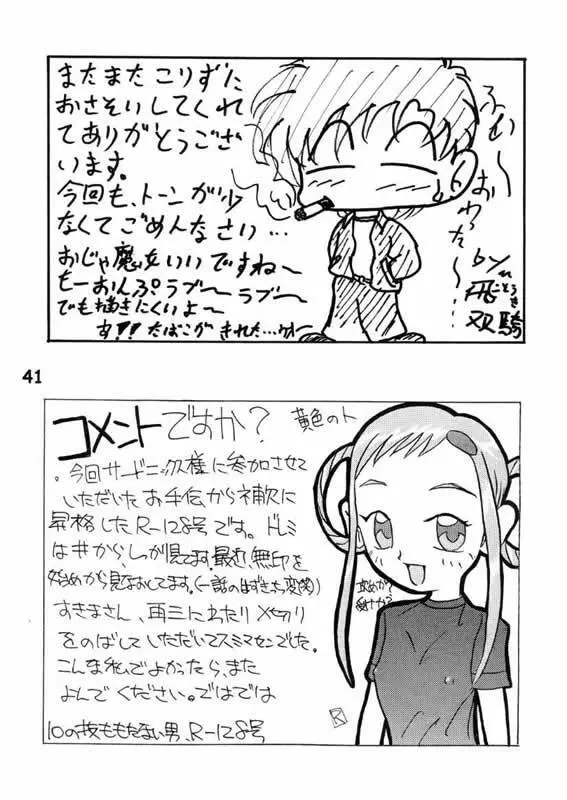 またまたこりずに
おさそいしてくれ
てありがとうござ
います。
今回も、トーンが少
なくてごめんなさい…
おじゃ魔女いいですね〜
もーおんぷラブ〜ラブ〜
でも描きにくいよ〜
あ!!たばこがきれた…
ふい〜
おわった〜…
by
飛
双騎
41
コメントですか?
黄色のト
。今回サードニックス様に参加させて
いただいたお手伝から補欠に
昇格したR-128号です。ドレミ
は#から、しか見てます。最近、無印を
始めから見なおしてます。(一話のはずきっち変(笑))
すきまさん、再三にわたり〆切り
をのばしていただいてスミマセンでした。
こんな私でよかったら、また
よんでください。ではでは
10の枚ももたない男、R-128号
R